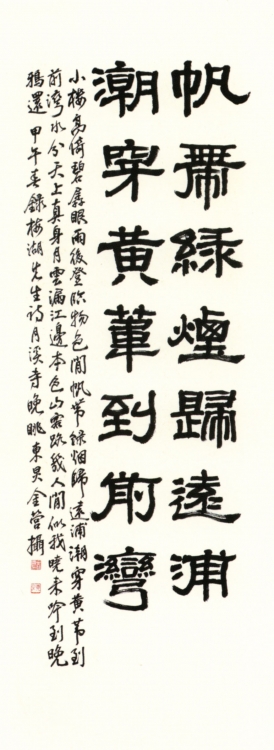 帆帶緑煙歸遠浦
潮穿黄葦到前灣
小樓高倚碧孱顔雨後登臨物色閒帆帶緑烟歸遠浦潮穿黄葦到
前灣水分天上真身月雲漏江邊本色山客路幾人閒似我曉来吟到晚
鴉還甲午春録梅湖先生詩月溪寺晩眺東昊金營攝